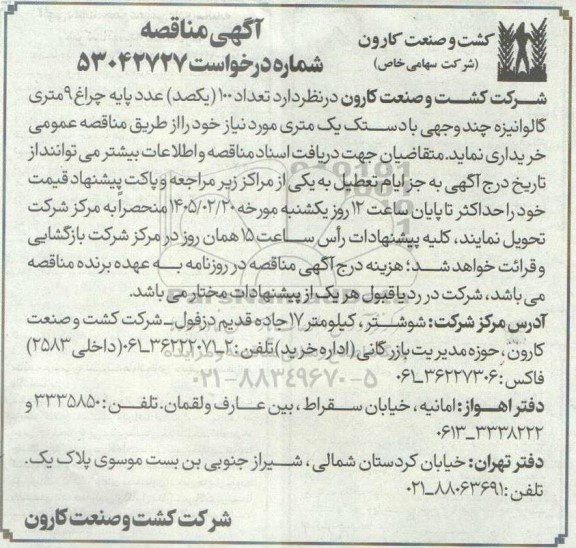 کشت و صنعت کارون
(شرکت سهامی خاص)
آگهی مناقصه
شماره درخواست ۵۳۰۴۲۷۲۷
شرکت کشت و صنعت کارون در نظر دارد تعداد ۱۰۰ (یکصد) عدد پایه چراغ ۹ متری
گالوانیزه چند وجهی با دستک یک متری مورد نیاز خود را از طریق مناقصه عمومی
خریداری نماید. متقاضیان جهت دریافت اسناد مناقصه و اطلاعات بیشتر می توانند از
تاریخ درج آگهی به جز ایام تعطیل به یکی از مراکز زیر مراجعه و پاکت پیشنهاد قیمت
خود را حداکثر تا پایان ساعت ۱۲ روز یکشنبه مورخه ۱۴۰۵/۰۲/۲۰ منحصراً به مرکز شرکت
تحویل نمایند، کلیه پیشنهادات رأس ساعت ۱۵ همان روز در مرکز شرکت بازگشایی
و قرائت خواهد شد؛ هزینه درج آگهی مناقصه در روزنامه به عهده برنده مناقصه
می باشد، شرکت در رد یا قبول هر یک از پیشنهادات مختار می باشد.
آدرس مرکز شرکت: شوشتر، کیلومتر ۱۷ جاده قدیم دزفول_شرکت کشت و صنعت
کارون، حوزه مدیریت بازرگانی (اداره خرید) تلفن: ۲_۰۶۱_۳۶۲۲۲۰۷۱ (داخلی ۲۵۸۳)
فاکس: ۰۶۱_۳۶۲۲۷۳۰۶
۰۲۱-۸۸۳۴۹۶۷۰-۵
دفتر اهواز: امانیه، خیابان سقراط، بین عارف و لقمان. تلفن: ۳۳۳۵۸۵۰ و
۰۶۱۳_۳۳۳۸۲۲۲
دفتر تهران: خیابان کردستان شمالی، شیراز جنوبی بن بست موسوی پلاک یک.
تلفن: ۰۲۱_۸۸۰۶۳۶۹۱
شرکت کشت و صنعت کارون